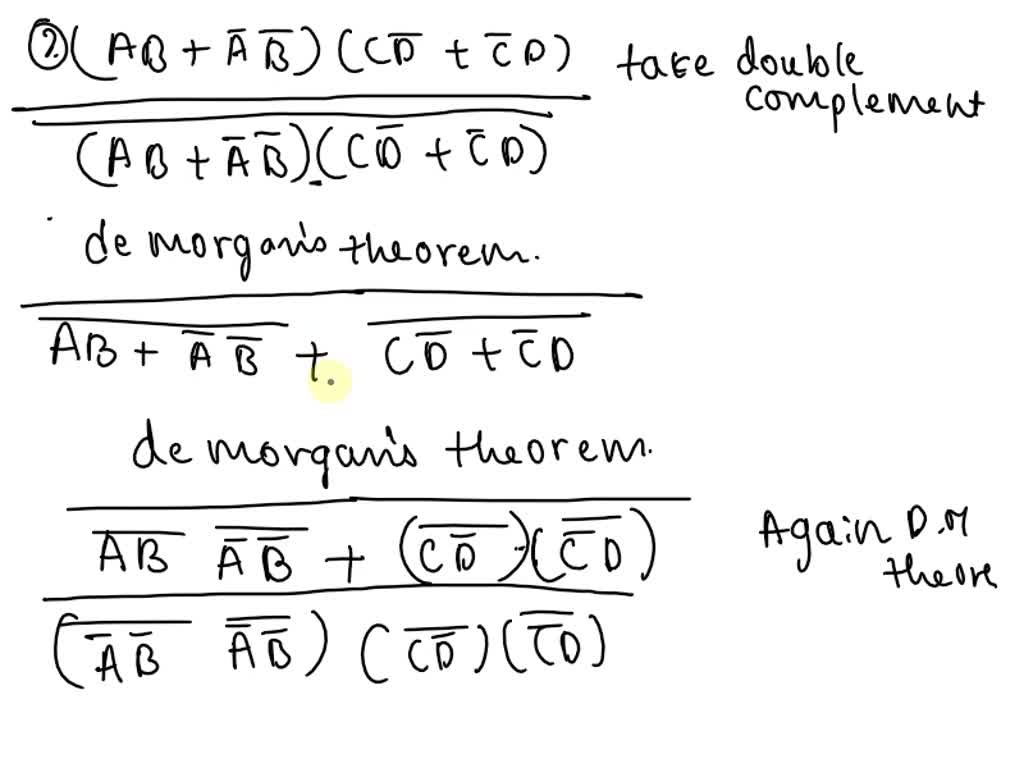 ② (AB + A̅ B̅) (CD̅ + C̅ D) take double complement
(AB + A̅ B̅).(CD̅ + C̅ D)
de morgan's theorem.
AB + A̅ B̅ + CD̅ + C̅ D
de morgan's theorem.
AB A̅ B̅ + (C D̅).(C̅ D) Again D.M theore
(A̅ B̅ A̅ B̅) (C D̅) (C̅ D)